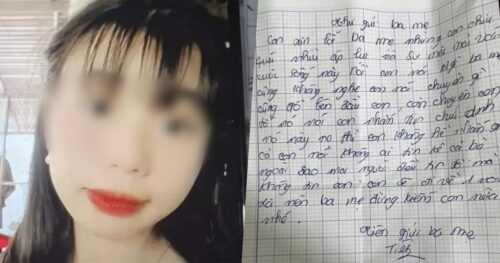 Thư gửi ba mẹ
Con xin lỗi ba mẹ nhưng con chịu
quá nhiều áp lực và sự mệt mỏi với
cuộc sống này rồi con nói ba mẹ
cũng không nghe con nói chuyện gì
cũng đổ lên đầu con, con chuyện con
đó nó nói con nhắn tin chửi
nó này nọ thì con không hề nhắn
cả con nói không ai tin kể cả bà
ngoại đào mọi người điều tin nó mà
không tin con con sẽ đi về 1 nơi
xa nên ba mẹ đừng kiếm con nữa
nhé.
gửi ba mẹ